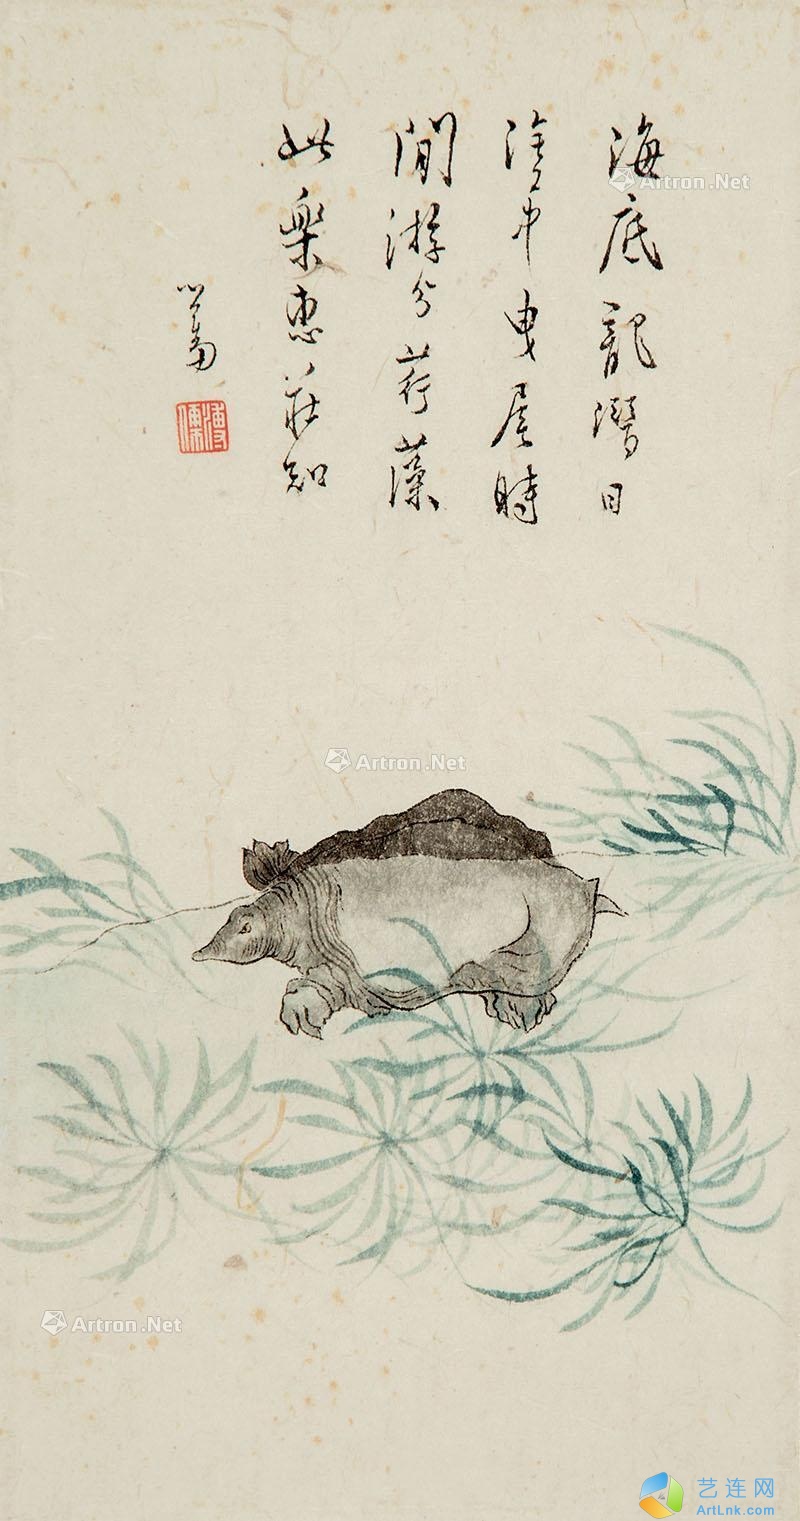 海底龍潛日
塗中曳尾時
閒游分荇藻
此樂惠莊知
心畬
溥儒
Artron.Net
Artron.Net
Artron.Net
艺连网
ArtLnk.com